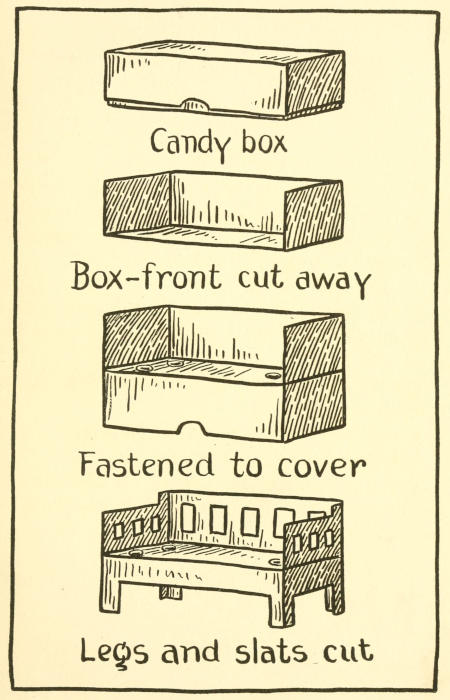 Candy box
Box-front cut away
Fastened to cover
Legs and slats cut